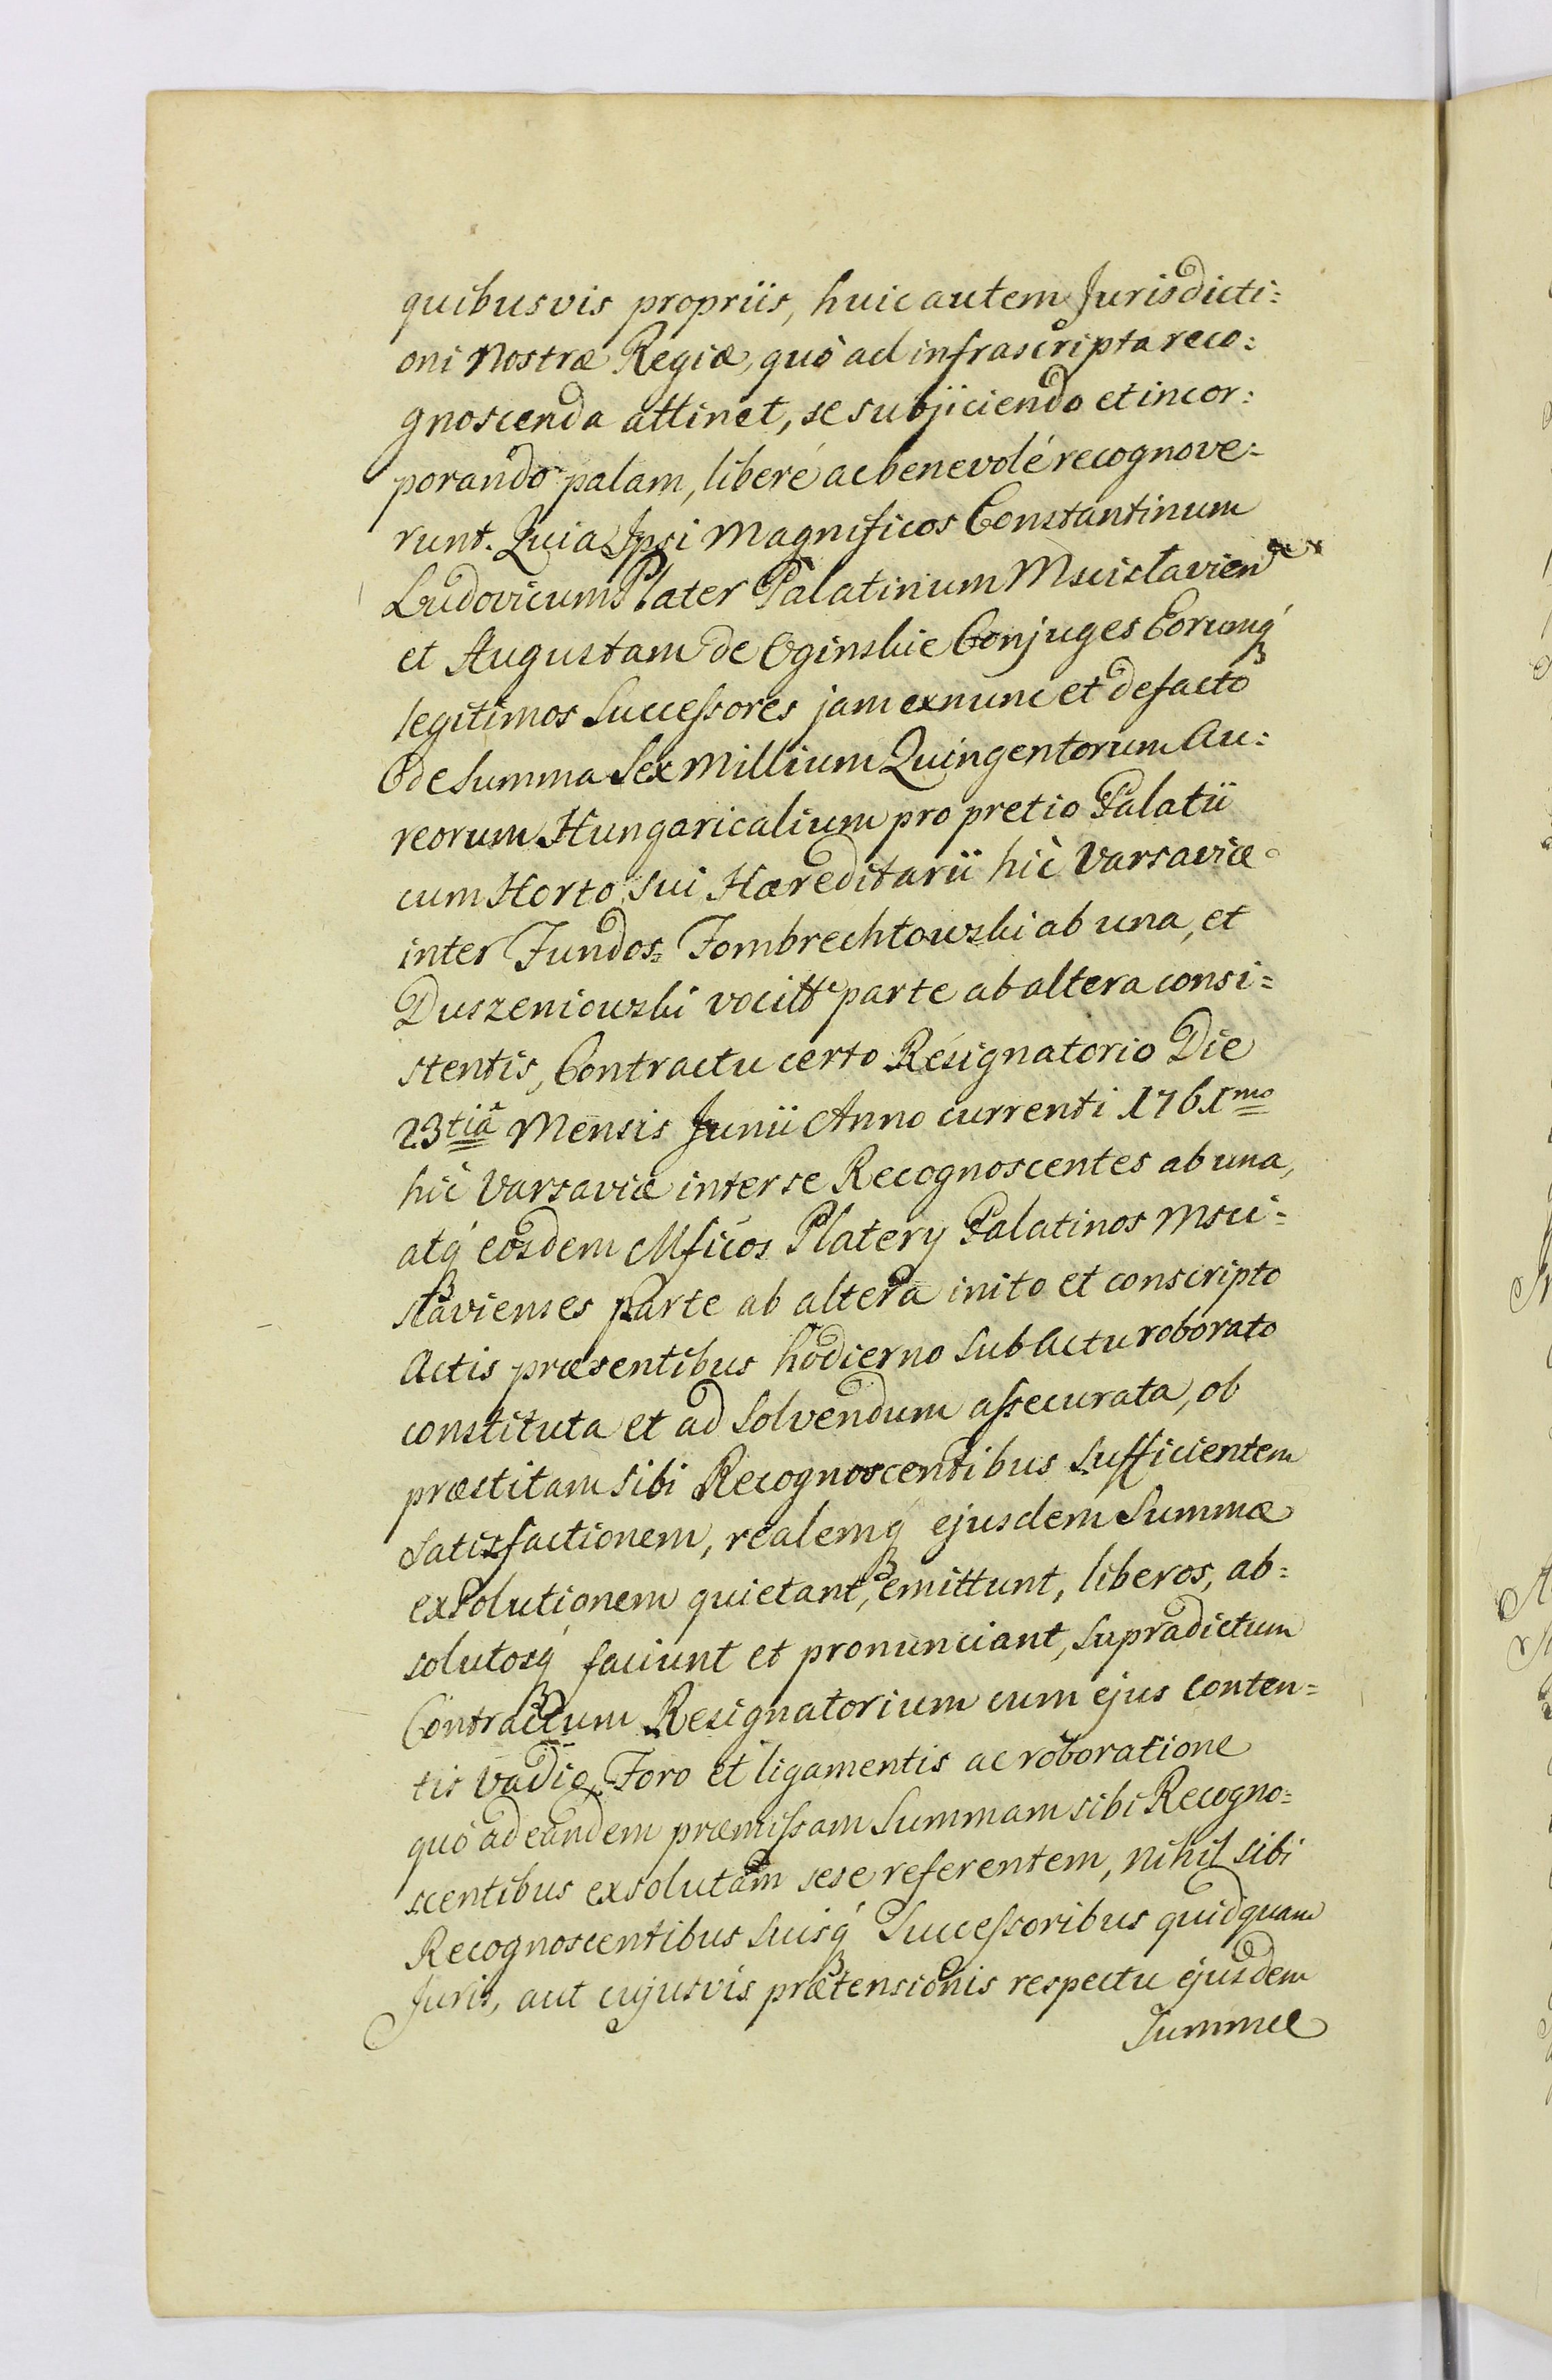 quibusvis propriis, huic autem Jurisdicti=
oni Nostræ Regiæ, quò ad infrascripta reco=
gnoscenda attinet, se subjiciendo et incor=
porando palam, liberé ac benevolé recognove=
runt. Quia Ipsi Magnificos Constantinum
Ludovicum Plater Palatinum Mscislavien
et Augustam de Oginskie Conjuges Eorumq́
legitimos Successores jam ex nunc et de facto
de Summa Sex Millium Quingentorum Au=
reorum Hungaricalium pro pretio Palatii
cum Horto sui Hæreditarii hic Varsaviæ
inter Fundos Fombrechtowski ab una, et
Duszeniowski vocitte parte ab altera consi=
stentis, Contractu certo Resignatorio Die
23tiâ Mensis Junii Anno currenti 1761mo
hic Varsaviæ inter se Recognoscentes ab una,
atq́ eosdem Mficos Platery Palatinos Msci=
slavienses parte ab altera inito et conscripto
Actis præsentibus hodierno sub Actu roborato
constituta et ad solvendum assecurata, ob
præstitam sibi Recognoscentibus sufficientem
Satisfactionem, realemq́ ejusdem Summæ
exsolutionem quietant, emittunt, liberos, ab=
solutosq́ faciunt et pronunciant, supradictum
Contractum Resignatorium cum ejus conten=
tis Vadio, Foro et ligamentis ac roboratione
quò ad eandem præmissam Summam sibi Recogno=
scentibus exsolutam sese referentem, nihil sibi
Recognoscentibus suisq́ Successoribus quidquam
Juris, aut cujusvis prætensionis respectu ejusdem
Summæ